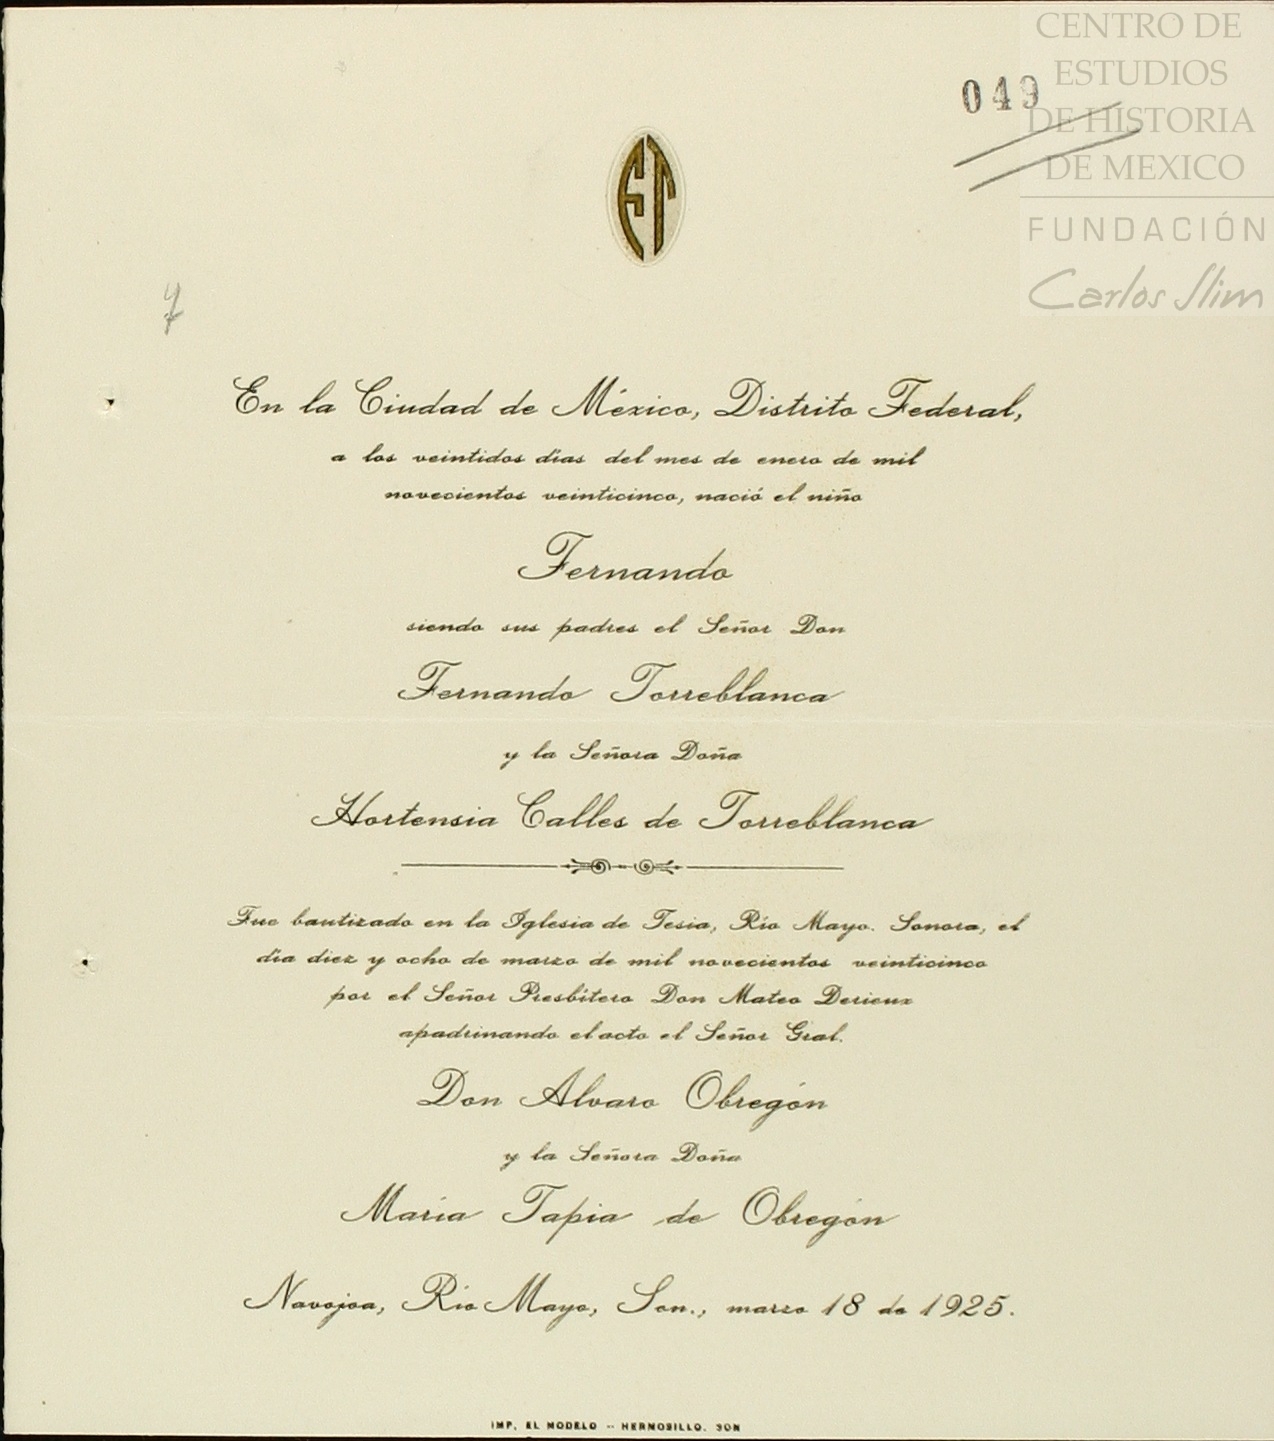 CENTRO DE
ESTUDIOS
DE HISTORIA
DE MEXICO
FUNDACIÓN
Carlos Slim
049
FT
En la Ciudad de México, Distrito Federal,
a los veintidos días del mes de enero de mil
novecientos veinticinco, nació el niño
Fernando
siendo sus padres el Señor Don
Fernando Torreblanca
y la Señora Doña
Hortensia Calles de Torreblanca
Fue bautizado en la Iglesia de Tesia, Río Mayo. Sonora, el
día diez y ocho de marzo de mil novecientos veinticinco
por el Señor Presbítero Don Mateo Derieux
apadrinando el acto el Señor Gral.
Don Alvaro Obregón
y la Señora Doña
María Tapia de Obregón
Navojoa, Río Mayo, Son., marzo 18 de 1925.
IMP. EL MODELO -- HERMOSILLO. SON